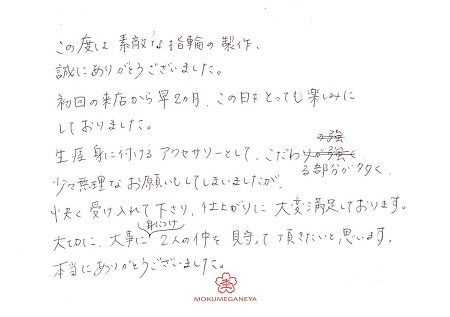 この度は素敵な指輪の製作、
誠にありがとうございました。
初回の来店から早2ヵ月、この日をとっても楽しみに
しておりました。
生涯身に付けるアクセサリーとして、こだわる部分が多く、
少々無理なお願いもしてしまいましたが、
快く受け入れて下さり、仕上がりに大変満足しております。
大切に、大事に身につけ2人の仲を見守って頂きたいと思います。
本当にありがとうございました。
MOKUMEGANEYA